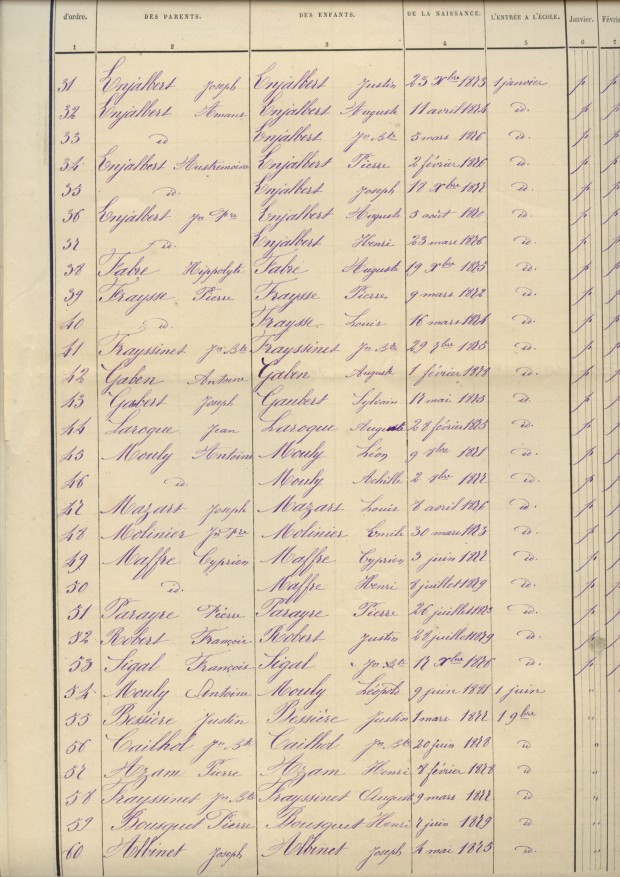 d'ordre. DES PARENTS. DES ENFANTS. DE LA NAISSANCE. L'ENTRÉE A L'ÉCOLE. Janvier. Févrie
1 2 3 4 5 6 7
31 Enjalbert Joseph Enjalbert Justin 23 Xbre 1873 1 janvier p
32 Enjalbert Amans Enjalbert Auguste 11 avril 1874 id. p
33 id Enjalbert Jn Bte 5 mars 1876 id. p
34 Enjalbert Austremoine Enjalbert Pierre 2 février 1876 id. p
35 id. Enjalbert Joseph 18 Xbre 1877 id. p
36 Enjalbert Jn Pre Enjalbert Auguste 5 août 1870 id. p
37 id. Enjalbert Henri 23 mars 1876 id. p
38 Fabre Hippolyte Fabre Auguste 19 Xbre 1875 id. p
39 Fraysse Pierre Fraysse Pierre 9 mars 1872 id. p
40 id. Fraysse Louis 16 mars 1874 id. p
41 Frayssinet Jn Bte Frayssinet Jn Bte 29 7bre 1875 id. p
42 Gaben Antoine Gaben Auguste 1 février 1878 id. p
43 Gabert Joseph Gaubert Sylvain 17 mai 1873 id. p
44 Laroque Jean Laroque Auguste 28 février 1875 id. p
45 Mouly Antoine Mouly Léon 9 1871 id. p
46 id. Mouly Achille 2 1877 id. p
47 Mazars Joseph Mazars Louis 8 avril 1876 id. p
48 Molinier Jn Pre Molinier Emile 30 mars 1873 id. p
49 Maffre Cyprien Maffre Cyprien 3 juin 1877 id. p
50 id. Maffre Henri 8 juillet 1879 id. p
51 Parayre Pierre Parayre Pierre 26 juillet id. p
52 Robert François Robert Justin 28 juillet 1879 id. p
53 Sigal François Sigal Jn Bte 17 Xbre 1876 id. p
54 Mouly Antoine Mouly Léopold 9 juin 1 juin "
55 Bessière Justin Bessière Justin 1 mars 1877 1 9bre "
56 Cailhol Jn Bte Cailhol Jn Bte 20 juin 1878 id "
57 Azam Pierre Azam Henri 8 février 1878 id "
58 Frayssinet Jn Bte Frayssinet August 9 mars 1877 id "
59 Bousquet Pierre Bousquet Henri 7 juin 1879 id "
60 Albinet Joseph Albinet Joseph 4 mai 1875 id "